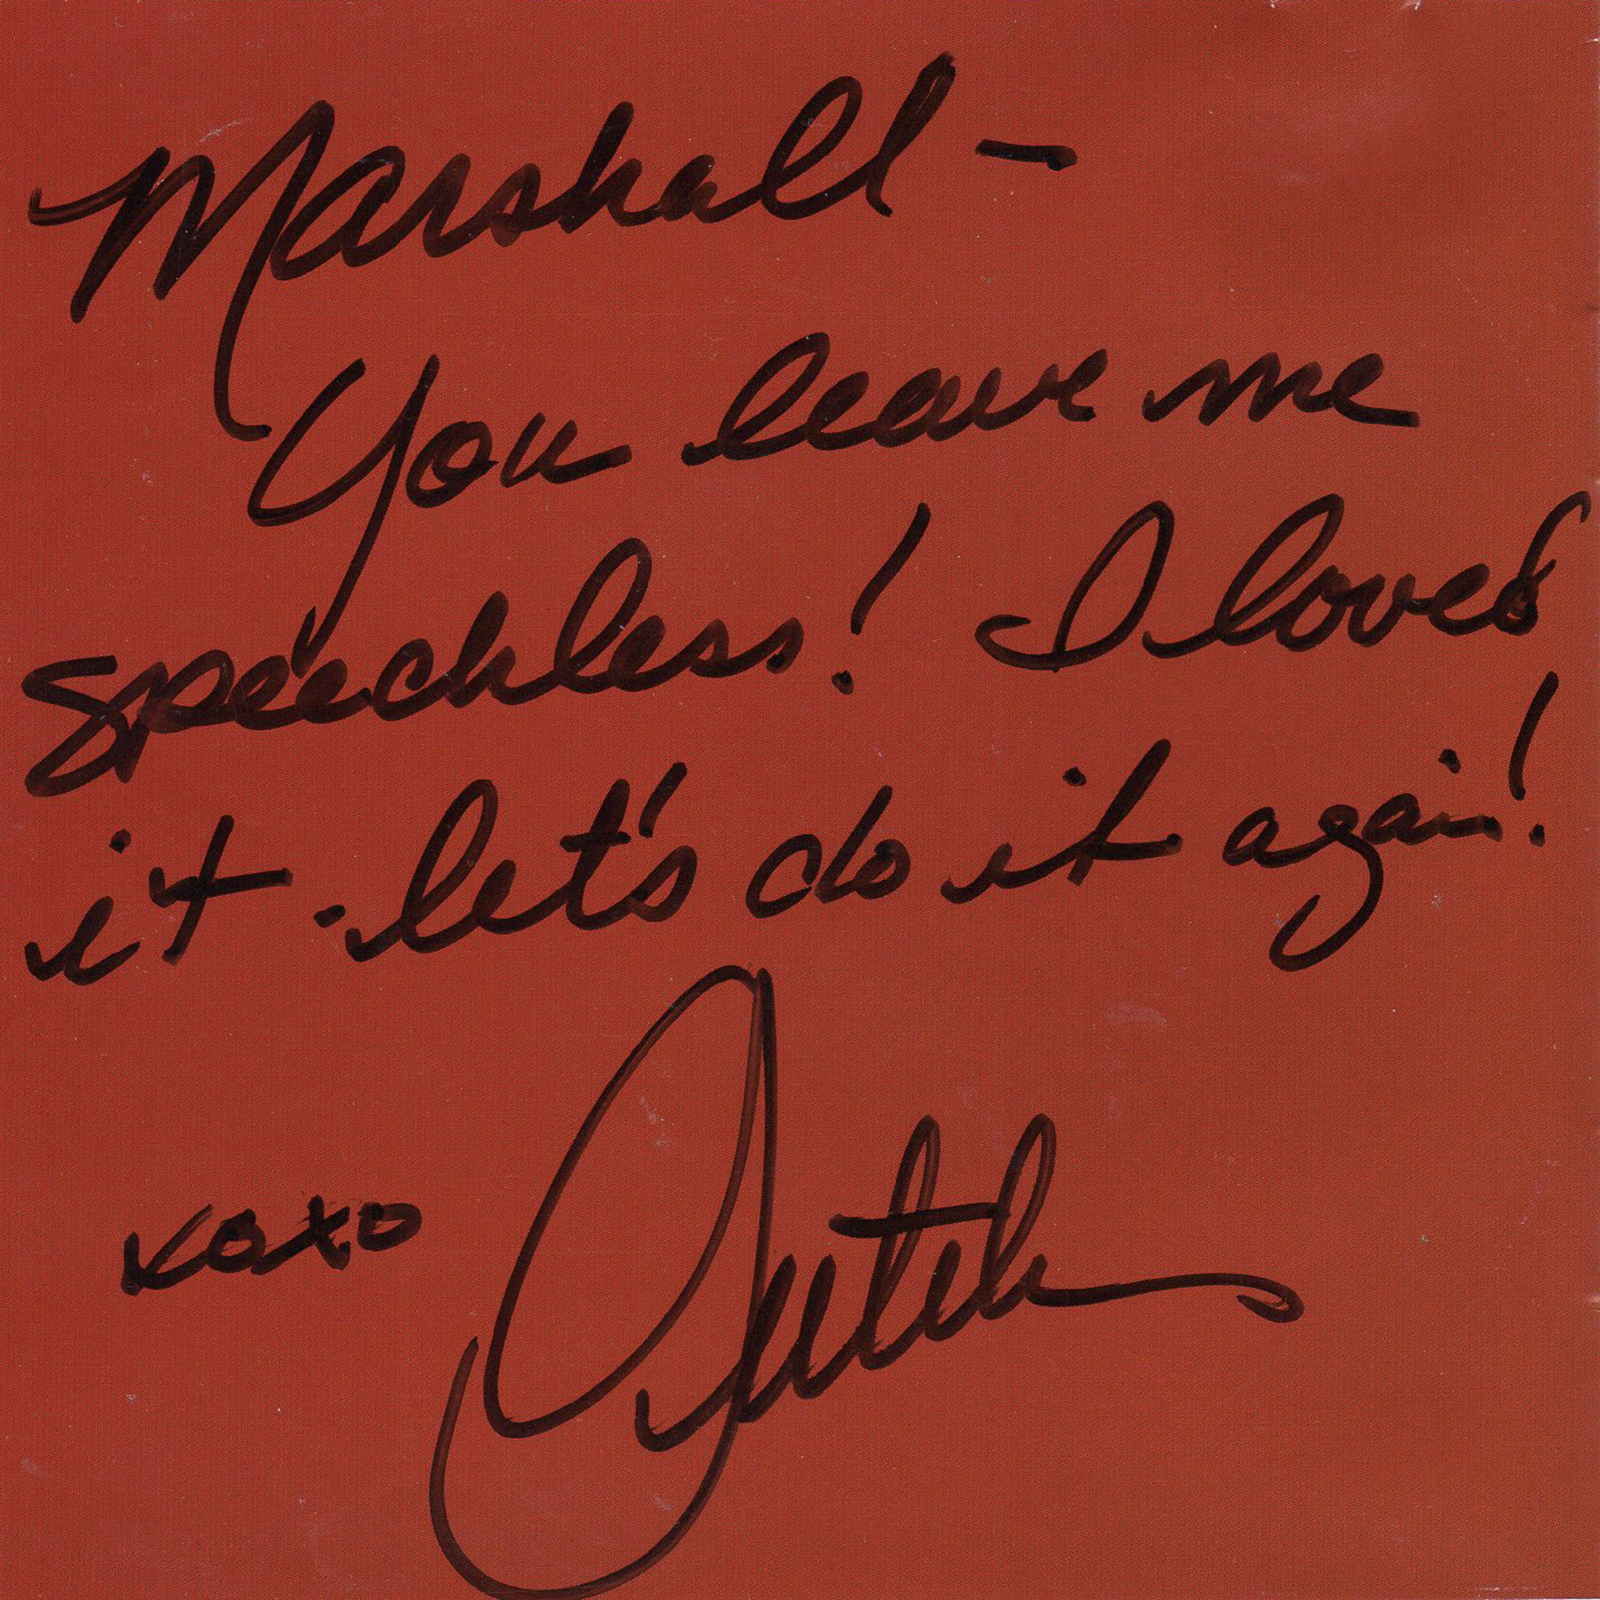 Marshall -
You leave me
speechless! I loved
it - let's do it again!
xoxo